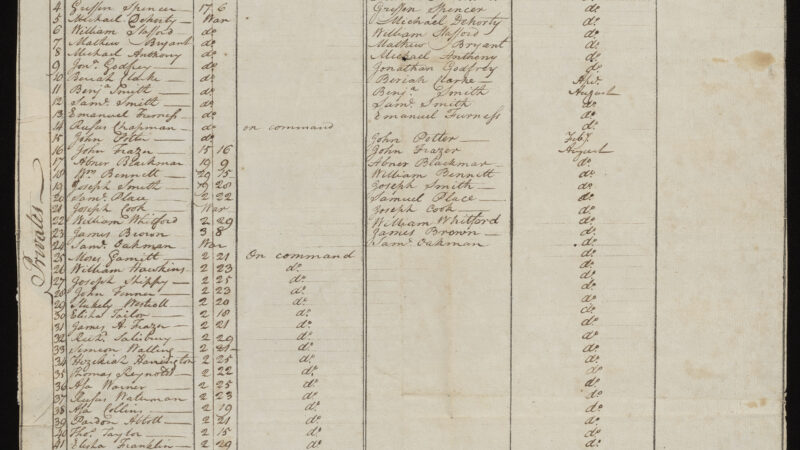 Privates
4 Griffin Spencer 17 6 Griffin Spencer
5 Michael Dohorty War Michael Dohorty do
6 William Stafford do William Stafford do
7 Mathew Bryant do Mathew Bryant do
8 Michael Anthony do Michael Anthony do
9 Jona Godfrey do Jonathan Godfrey do
10 Beriah Clarke do Beriah Clarke Apr.
11 Benja Smith do Benja Smith August
12 Saml Smith do Saml Smith do
13 Emanuel Furness do Emanuel Furness do
14 Rufus Chapman do on command do
15 John Potter do John Potter Feby
16 John Frazer 15 16 John Frazer August
17 Abner Blackmar 19 9 Abner Blackmar do
18 Wm Bennett 29 15 William Bennett do
19 Joseph Smith 19 28 Joseph Smith do
20 Saml Place 2 22 Samuel Place do
21 Joseph Cook War Joseph Cook do
22 William Whitford 2 29 William Whitford do
23 James Brown 3 8 James Brown do
24 Saml Oakman War Saml Oakman do
25 Moses Gamitt 2 21 On command do
26 William Hawkins 2 23 do do
27 Joseph Shippy 2 25 do do
28 John Finner 2 23 do do
29 Stukely Westcott 2 20 do do
30 Elisha Tailor 2 18 do do
31 James A Frazer 2 21 do do
32 Richd Salisbury 2 29 do do
33 Simeon Watling 2 21 do do
34 Hezekiah Harrington 2 25 do do
35 Thomas Reynolds 2 22 do do
36 Asa Warner 2 25 do do
37 Rufus Waterman 2 23 do do
38 Asa Collins 2 19 do do
39 Pardon Abbott 2 21 do do
40 Thos Taylor 2 15 do do
41 Elisha Franklin 2 29 do do